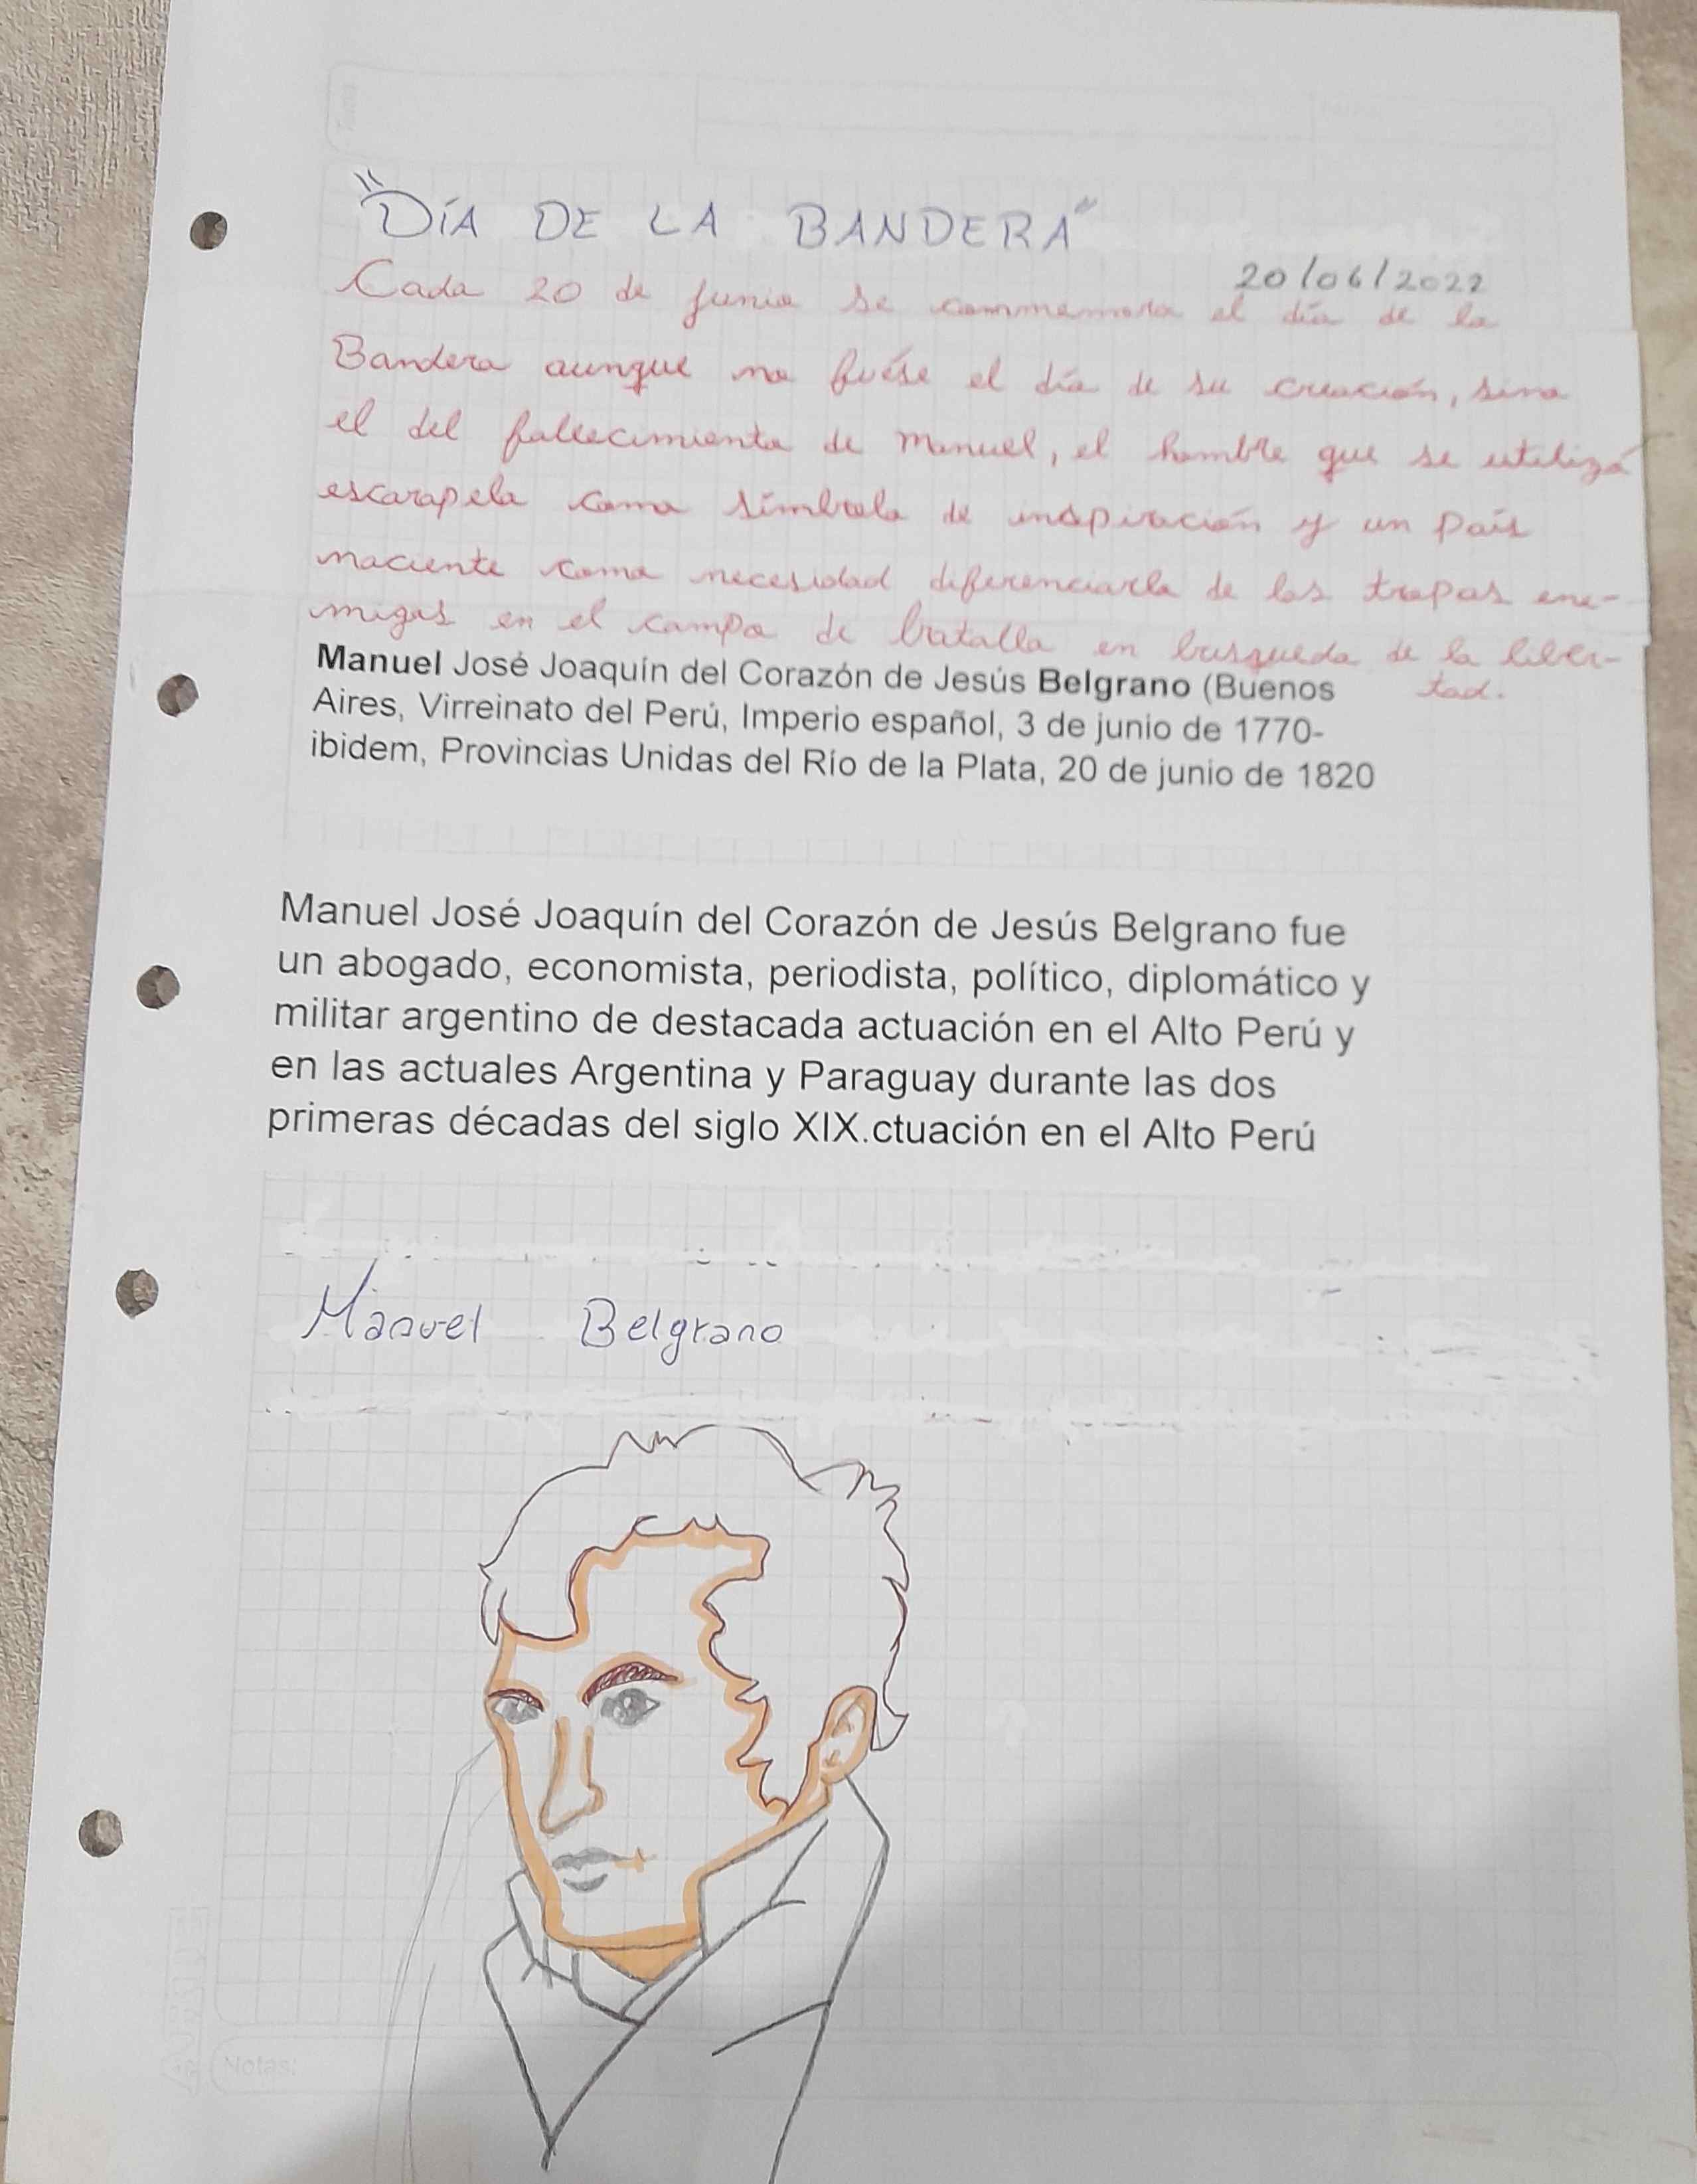 "DÍA DE LA BANDERA"
20/06/2022
Cada 20 de junio se conmemora el día de la
Bandera aunque no fuése el día de su creación, sino
el del fallecimiento de Manuel, el hombre que se utilizá
escarapela como símbolo de inspiración y un país
naciente como necesidad diferenciarla de las tropas ene-
migas en el campo de batalla en busqueda de la liber-
tad.
Manuel José Joaquín del Corazón de Jesús Belgrano (Buenos
Aires, Virreinato del Perú, Imperio español, 3 de junio de 1770-
ibidem, Provincias Unidas del Río de la Plata, 20 de junio de 1820
Manuel José Joaquín del Corazón de Jesús Belgrano fue
un abogado, economista, periodista, político, diplomático y
militar argentino de destacada actuación en el Alto Perú y
en las actuales Argentina y Paraguay durante las dos
primeras décadas del siglo XIX.ctuación en el Alto Perú
Manuel Belgrano
Notas: